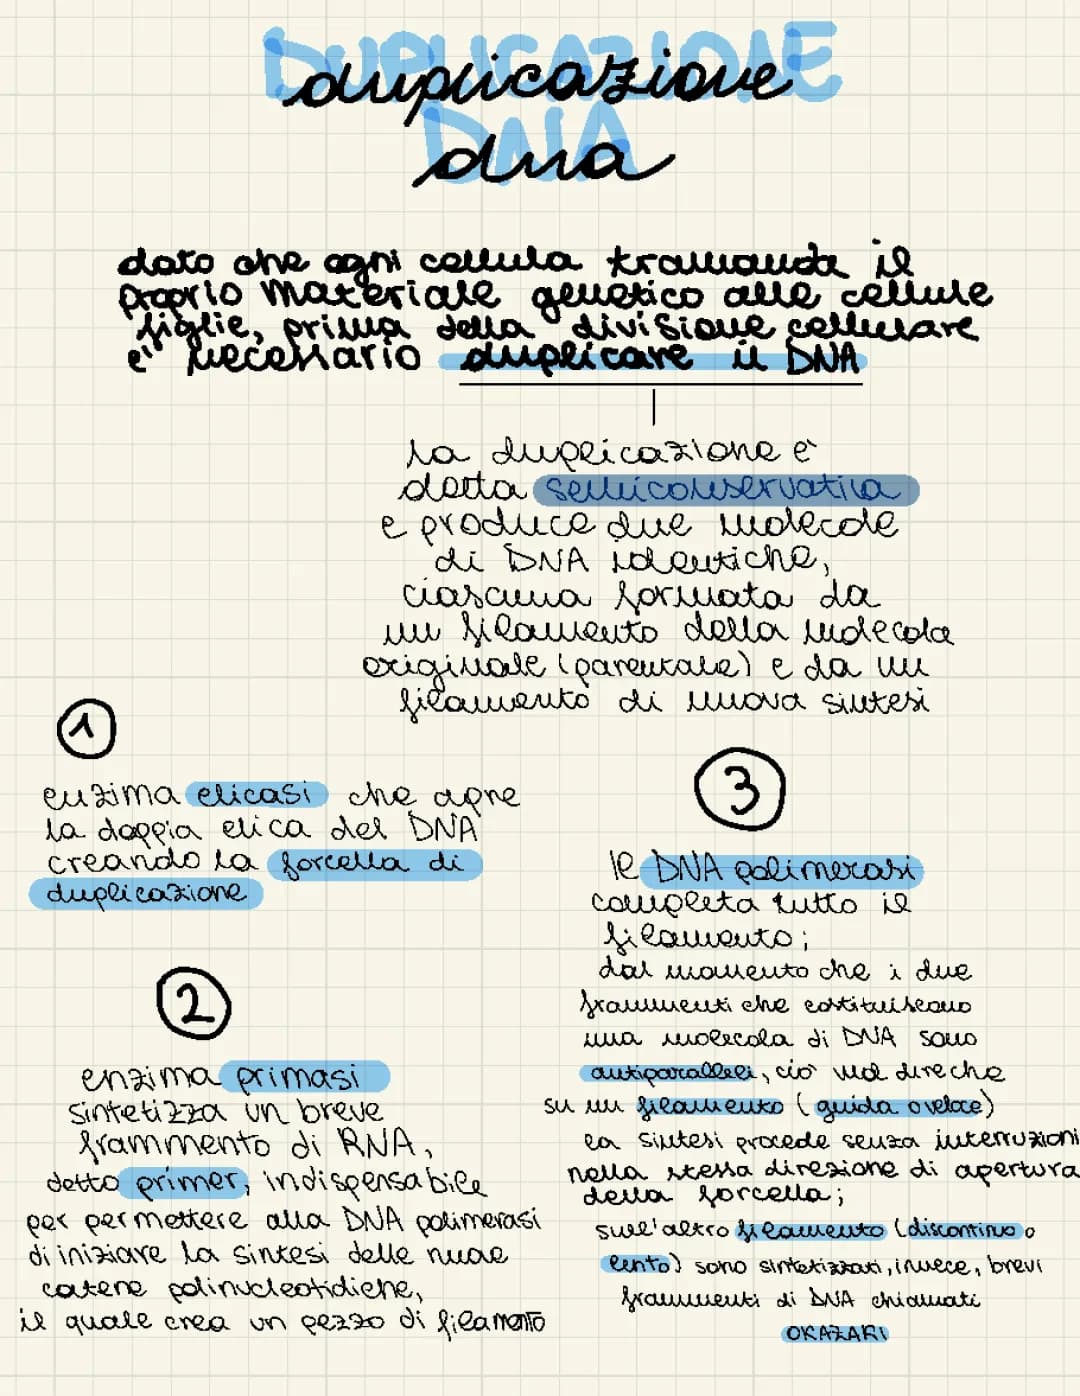 DUPLICAZIONE
DNA
duplicazione
dna
dato che ogni cellula tramanda il
proprio materiale genetico alle cellule
figlie, prima della divisione cellulare
e' necessario duplicare il DNA
la duplicazione è
detta semiconservativa
e produce due molecole
di DNA identiche,
ciascuna formata da
un filamento della molecola
originale (parentale) e da un
filamento di nuova sintesi
1
enzima elicasi che apre
la doppia elica del DNA
creando la forcella di
duplicazione
2
enzima primasi
sintetizza un breve
frammento di RNA,
detto primer, indispensabile
per permettere alla DNA polimerasi
di iniziare la sintesi delle nuove
catene polinucleotidiche,
il quale crea un pezzo di filamento
3
le DNA polimerasi
completa tutto il
filamento;
dal momento che i due
frammenti che costituiscono
una molecola di DNA sono
antiparalleli, ciò vuol dire che
su un filamento (guida o veloce)
la sintesi procede senza interruzioni
nella stessa direzione di apertura
della forcella;
sull'altro filamento (discontinuo o
lento) sono sintetizzati, invece, brevi
frammenti di DNA chiamati
OKAZAKI